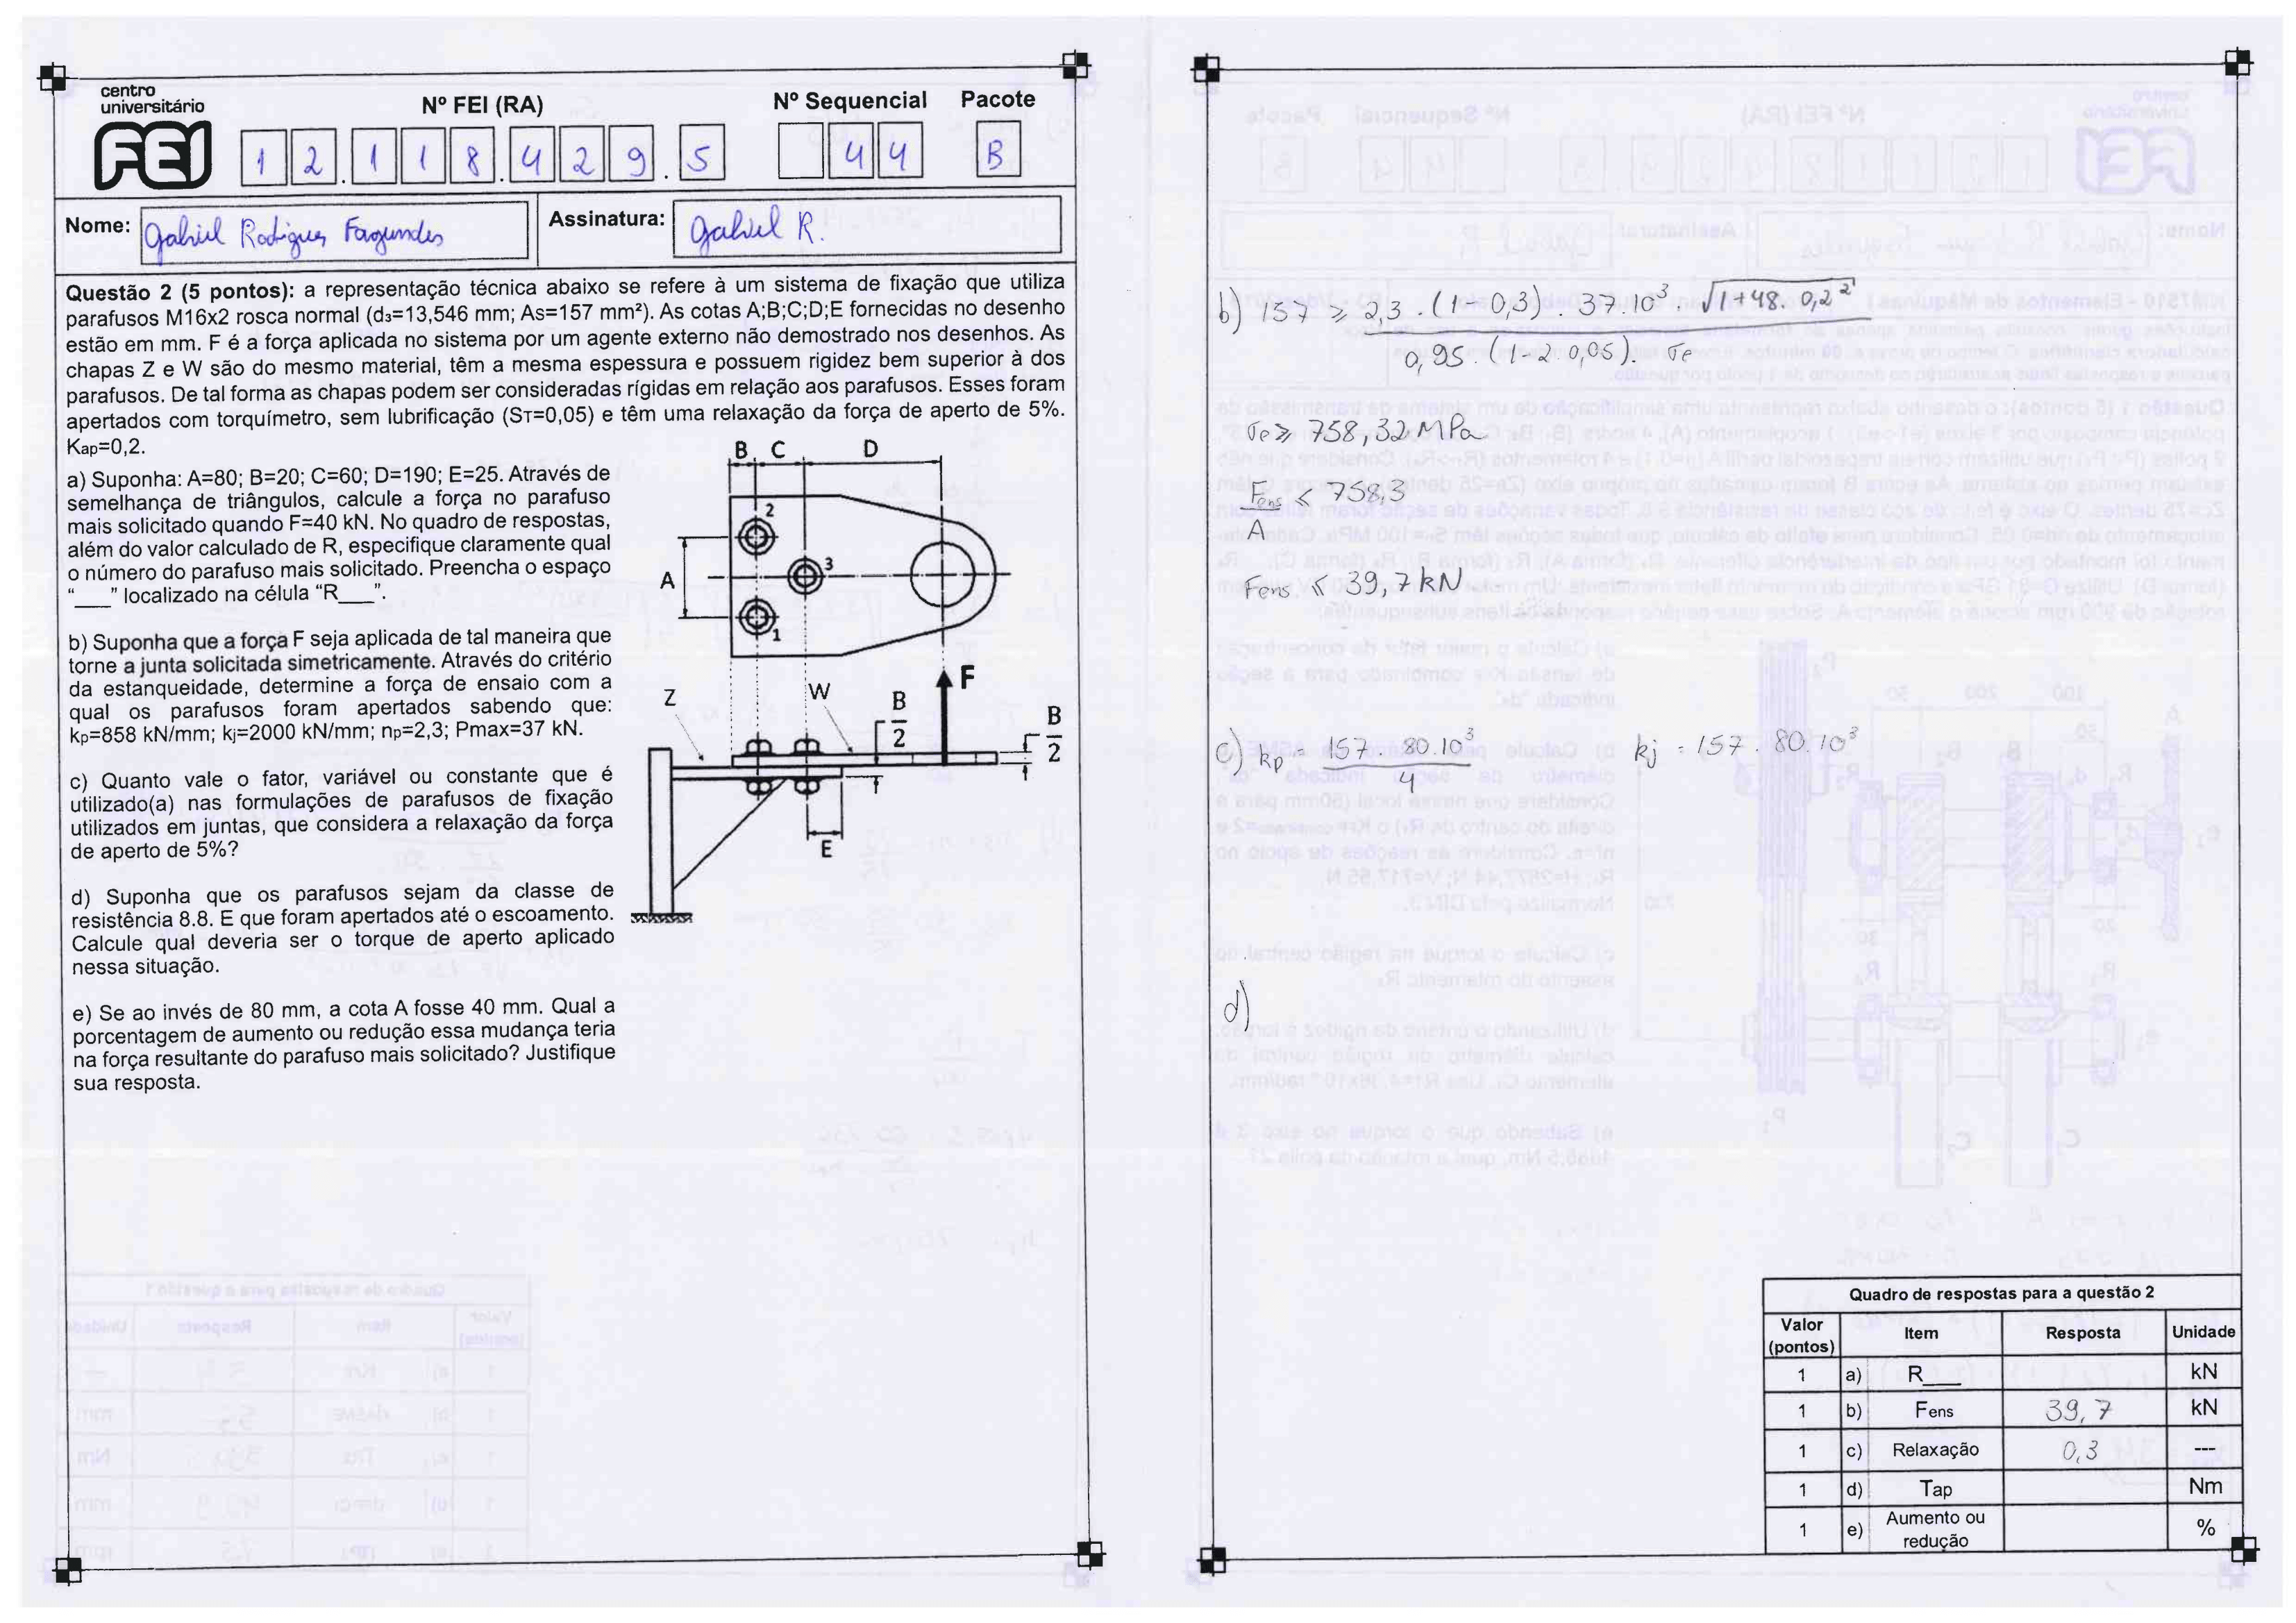 centro
universitário
FEI
Nº FEI (RA)
Nº Sequencial
Pacote
1 2 . 1 1 8 . 4 2 9 . 5
4 4
B
Nome: Gabriel Rodrigues Fagundes
Assinatura: Gabriel R.
Questão 2 (5 pontos): a representação técnica abaixo se refere à um sistema de fixação que utiliza
parafusos M16x2 rosca normal (d₃=13,546 mm; As=157 mm²). As cotas A;B;C;D;E fornecidas no desenho
estão em mm. F é a força aplicada no sistema por um agente externo não demostrado nos desenhos. As
chapas Z e W são do mesmo material, têm a mesma espessura e possuem rigidez bem superior à dos
parafusos. De tal forma as chapas podem ser consideradas rígidas em relação aos parafusos. Esses foram
apertados com torquímetro, sem lubrificação (Sᴛ=0,05) e têm uma relaxação da força de aperto de 5%.
Kap=0,2.
a) Suponha: A=80; B=20; C=60; D=190; E=25. Através de
semelhança de triângulos, calcule a força no parafuso
mais solicitado quando F=40 kN. No quadro de respostas,
além do valor calculado de R, especifique claramente qual
o número do parafuso mais solicitado. Preencha o espaço
“___” localizado na célula “R___”.
b) Suponha que a força F seja aplicada de tal maneira que
torne a junta solicitada simetricamente. Através do critério
da estanqueidade, determine a força de ensaio com a
qual os parafusos foram apertados sabendo que:
kp=858 kN/mm; kj=2000 kN/mm; np=2,3; Pmax=37 kN.
c) Quanto vale o fator, variável ou constante que é
utilizado(a) nas formulações de parafusos de fixação
utilizados em juntas, que considera a relaxação da força
de aperto de 5%?
d) Suponha que os parafusos sejam da classe de
resistência 8.8. E que foram apertados até o escoamento.
Calcule qual deveria ser o torque de aperto aplicado
nessa situação.
e) Se ao invés de 80 mm, a cota A fosse 40 mm. Qual a
porcentagem de aumento ou redução essa mudança teria
na força resultante do parafuso mais solicitado? Justifique
sua resposta.
B C D
2
3
A
1
F
Z
W
B
2
B
2
E
b) 157 ≥ 2,3 . (1 - 0,3) . 37.10³ . √1+48. 0,2²
0,95. (1-2.0,05). σe
σe ≥ 758,32 MPa
Fens ≤ 758,3
A
Fens ≤ 39,7 kN
c) kp = 157. 80.10³ kj = 157 . 80.10³
4
d)
Quadro de respostas para a questão 2
Valor
(pontos) Item Resposta Unidade
1 a) R___ kN
1 b) Fens 39,7 kN
1 c) Relaxação 0,3 ---
1 d) Tap Nm
1 e) Aumento ou
redução %